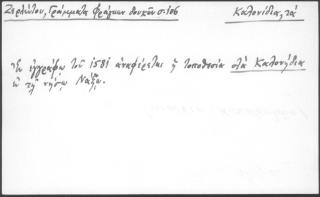 Ζερλέντου, Γράμματα Φράγκων δουκῶν σ. 106
Καλονίδια, τά
ἐν ἐγγράφῳ τοῦ 1581 ἀναφέρεται ἡ τοποθεσία στὰ Καλονήδια
ἐν τῇ νήσῳ Νάξῳ.